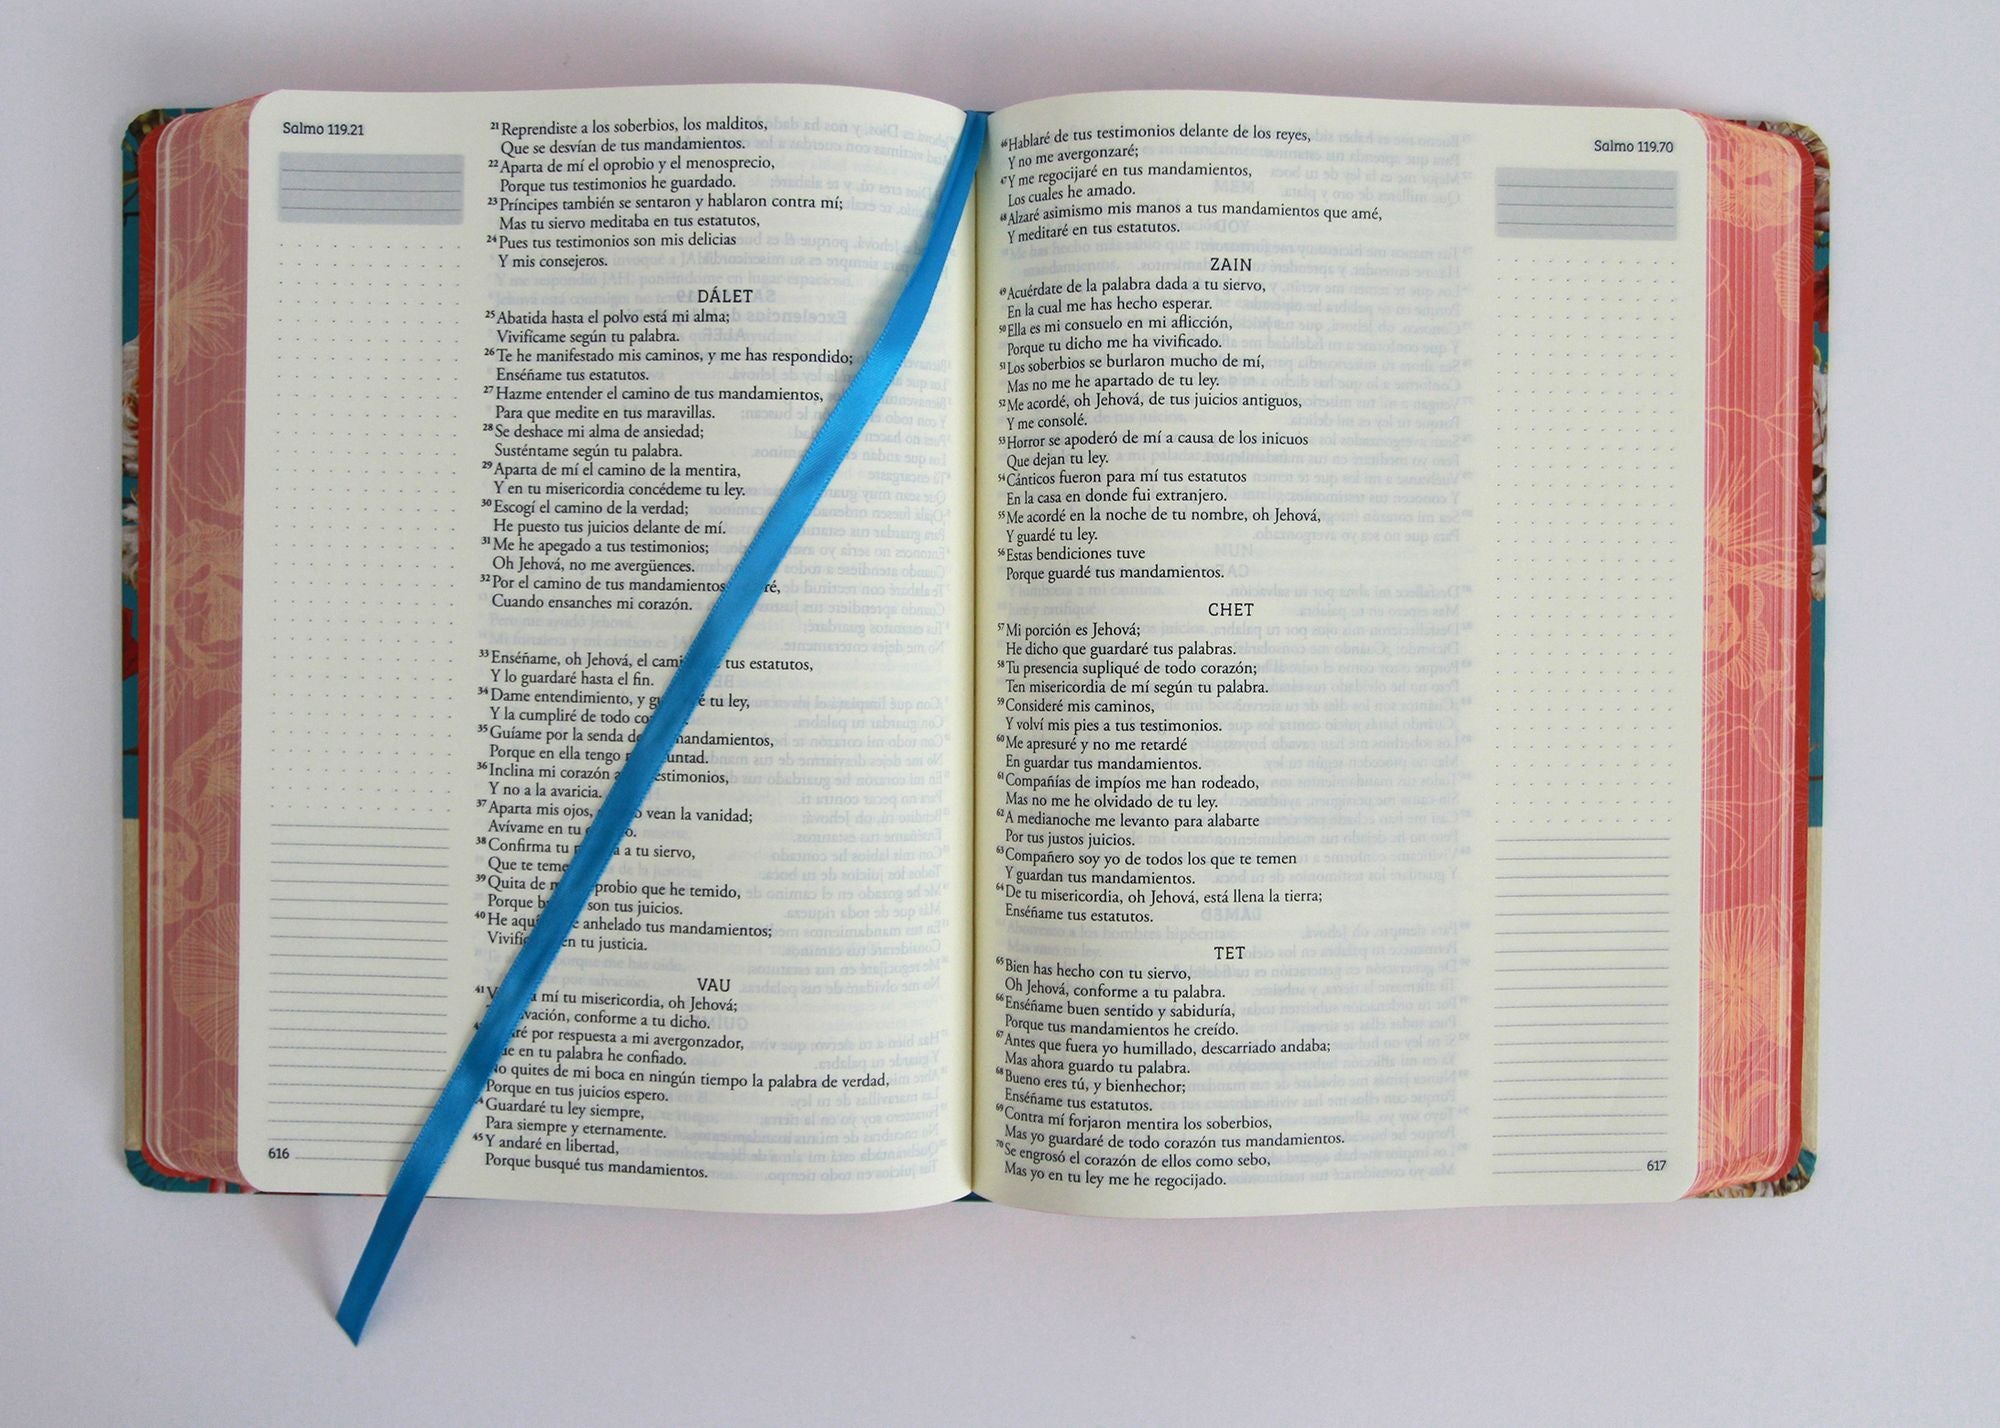 Salmo 119.21
21 Reprendiste a los soberbios, los malditos,
Que se desvían de tus mandamientos.
22 Aparta de mí el oprobio y el menosprecio,
Porque tus testimonios he guardado.
23 Príncipes también se sentaron y hablaron contra mí;
Mas tu siervo meditaba en tus estatutos,
24 Pues tus testimonios son mis delicias
Y mis consejeros.
DÁLET
25 Abatida hasta el polvo está mi alma;
Vivifícame según tu palabra.
26 Te he manifestado mis caminos, y me has respondido;
Enséñame tus estatutos.
27 Hazme entender el camino de tus mandamientos,
Para que medite en tus maravillas.
28 Se deshace mi alma de ansiedad;
Susténtame según tu palabra.
29 Aparta de mí el camino de la mentira,
Y en tu misericordia concédeme tu ley.
30 Escogí el camino de la verdad;
He puesto tus juicios delante de mí.
31 Me he apegado a tus testimonios;
Oh Jehová, no me avergüences.
32 Por el camino de tus mandamientos
Cuando ensanches mi corazón.
33 Enséñame, oh Jehová, el tus estatutos,
Y lo guardaré hasta el fin.
34 Dame entendimiento, y tu ley,
Y la cumpliré de todo
35 Guíame por la senda de mandamientos,
Porque en ella tengo
36 Inclina mi corazón testimonios,
Y no a la avaricia.
37 Aparta mis ojos, vean la vanidad;
Avívame en tu
38 Confirma tu a tu siervo,
Que te
39 Quita de oprobio que he temido,
Porque son tus juicios.
40 He aquí anhelado tus mandamientos;
en tu justicia.
VAU
41 mí tu misericordia, oh Jehová;
conforme a tu dicho.
por respuesta a mi avergonzador,
en tu palabra he confiado.
No quites de mi boca en ningún tiempo la palabra de verdad,
Porque en tus juicios espero.
Guardaré tu ley siempre,
Para siempre y eternamente.
45 Y andaré en libertad,
Porque busqué tus mandamientos.
616
Salmo 119.70
46 Hablaré de tus testimonios delante de los reyes,
Y no me avergonzaré;
47 Y me regocijaré en tus mandamientos,
Los cuales he amado.
48 Alzaré asimismo mis manos a tus mandamientos que amé,
Y meditaré en tus estatutos.
ZAIN
49 Acuérdate de la palabra dada a tu siervo,
En la cual me has hecho esperar.
50 Ella es mi consuelo en mi aflicción,
Porque tu dicho me ha vivificado.
51 Los soberbios se burlaron mucho de mí,
Mas no me he apartado de tu ley.
52 Me acordé, oh Jehová, de tus juicios antiguos,
Y me consolé.
53 Horror se apoderó de mí a causa de los inicuos
Que dejan tu ley.
54 Cánticos fueron para mí tus estatutos
En la casa en donde fui extranjero.
55 Me acordé en la noche de tu nombre, oh Jehová,
Y guardé tu ley.
56 Estas bendiciones tuve
Porque guardé tus mandamientos.
CHET
57 Mi porción es Jehová;
He dicho que guardaré tus palabras.
58 Tu presencia supliqué de todo corazón;
Ten misericordia de mí según tu palabra.
59 Consideré mis caminos,
Y volví mis pies a tus testimonios.
60 Me apresuré y no me retardé
En guardar tus mandamientos.
61 Compañías de impíos me han rodeado,
Mas no me he olvidado de tu ley.
62 A medianoche me levanto para alabarte
Por tus justos juicios.
63 Compañero soy yo de todos los que te temen
Y guardan tus mandamientos.
64 De tu misericordia, oh Jehová, está llena la tierra;
Enséñame tus estatutos.
TET
65 Bien has hecho con tu siervo,
Oh Jehová, conforme a tu palabra.
66 Enséñame buen sentido y sabiduría,
Porque tus mandamientos he creído.
67 Antes que fuera yo humillado, descarriado andaba;
Mas ahora guardo tu palabra.
68 Bueno eres tú, y bienhechor;
Enséñame tus estatutos.
69 Contra mí forjaron mentira los soberbios,
Mas yo guardaré de todo corazón tus mandamientos.
70 Se engrosó el corazón de ellos como sebo,
Mas yo en tu ley me he regocijado.
617